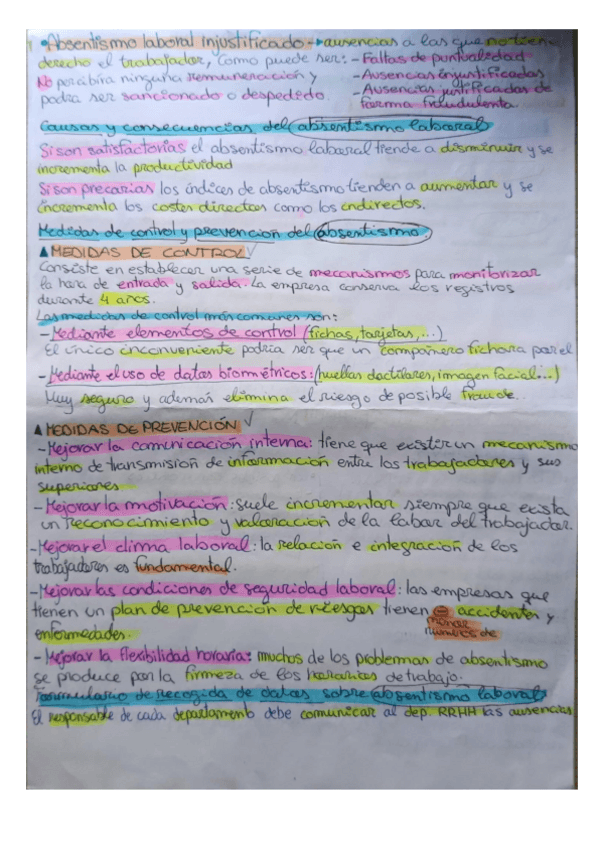 •Absentismo laboral injustificado→ausencias a las que no tien-
derecho el trabajador, como puede ser: - Faltas de puntualidad
No percibira ninguna remuneración y - Ausencias injustificadas
podra ser sancionado o despedido. - Ausencias justificadas de
forma fraudulenta
Causas y consecuencias del absentismo laboral
Si son satisfactorias el absentismo laboral tiende a disminuir y se
incrementa la productividad
Si son precarias los índices de absentismo tienden a aumentar y se
incrementa los costes directos como los indirectos.
Medidas de control y prevención del absentismo.
▲MEDIDAS DE CONTROL√
Consiste en establecer una serie de mecanismos para monitorizar
la hora de entrada y salida. La empresa conserva los registros
durante 4 años.
Las medidas de control más comunes son:
- Mediante elementos de control (fichas, tarjetas, ...)
El único inconveniente podria ser que un compañero fichara por el
- Mediante el uso de datos biométricos: (huellas dactilares, imagen facial...)
Muy seguro y además elimina el riesgo de posible fraude.
▲MEDIDAS DE PREVENCIÓN √
- Mejorar la comunicación interna: tiene que existir un mecanismo
interno de transmision de información entre los trabajadores y sus
superiores
- Mejorar la motivación: suele incrementar siempre que exista
un reconocimiento y valoración de la labor del trabajador.
- Mejorar el clima laboral: la relación e integración de los
trabajadores es fundamental.
- Mejorar las condiciones de seguridad laboral: las empresas que
tienen un plan de prevención de riesgos tienen accidentes y
menor
enfermedades. números de
- Mejorar la flexibilidad horaria: muchos de los problemas de absentismo
se produce por la firmeza de los horarios de trabajo.
Formulario de recogida de datos sobre absentismo laboral
El responsable de cada departamento debe comunicar al dep. RRHH las ausencias